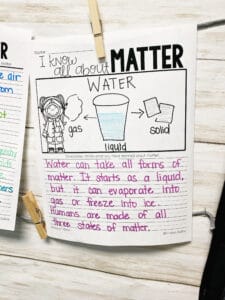 Name
I know
all about MATTER
WATER
gas
solid
liquid
Water can take all forms of
matter. It starts as a liquid,
but it can evaporate into
gas or freeze into ice.
Humans are made of all
three states of matter.
R
e air